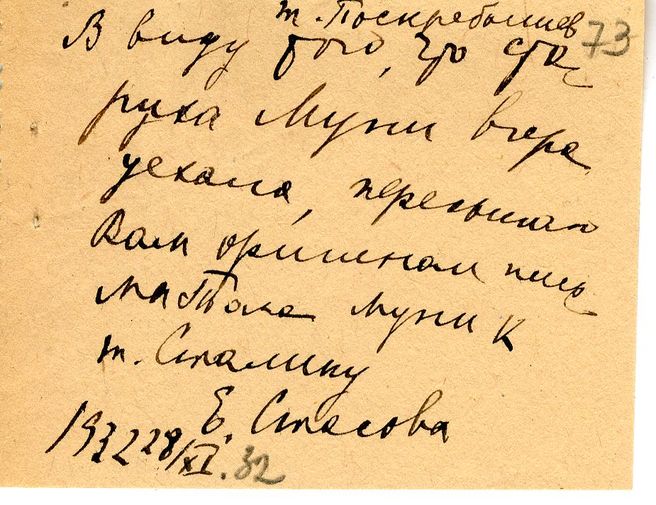 т. Поскребышев
73
В виду того, что ста-
руха Муни вчера
уехала, пересылаю
Вам оригинал пись-
ма Тома Муни к
т. Сталину
Е. Стасова
193228/XI.32